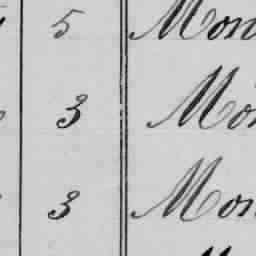 5 Mon
3 Mon
3 Mon